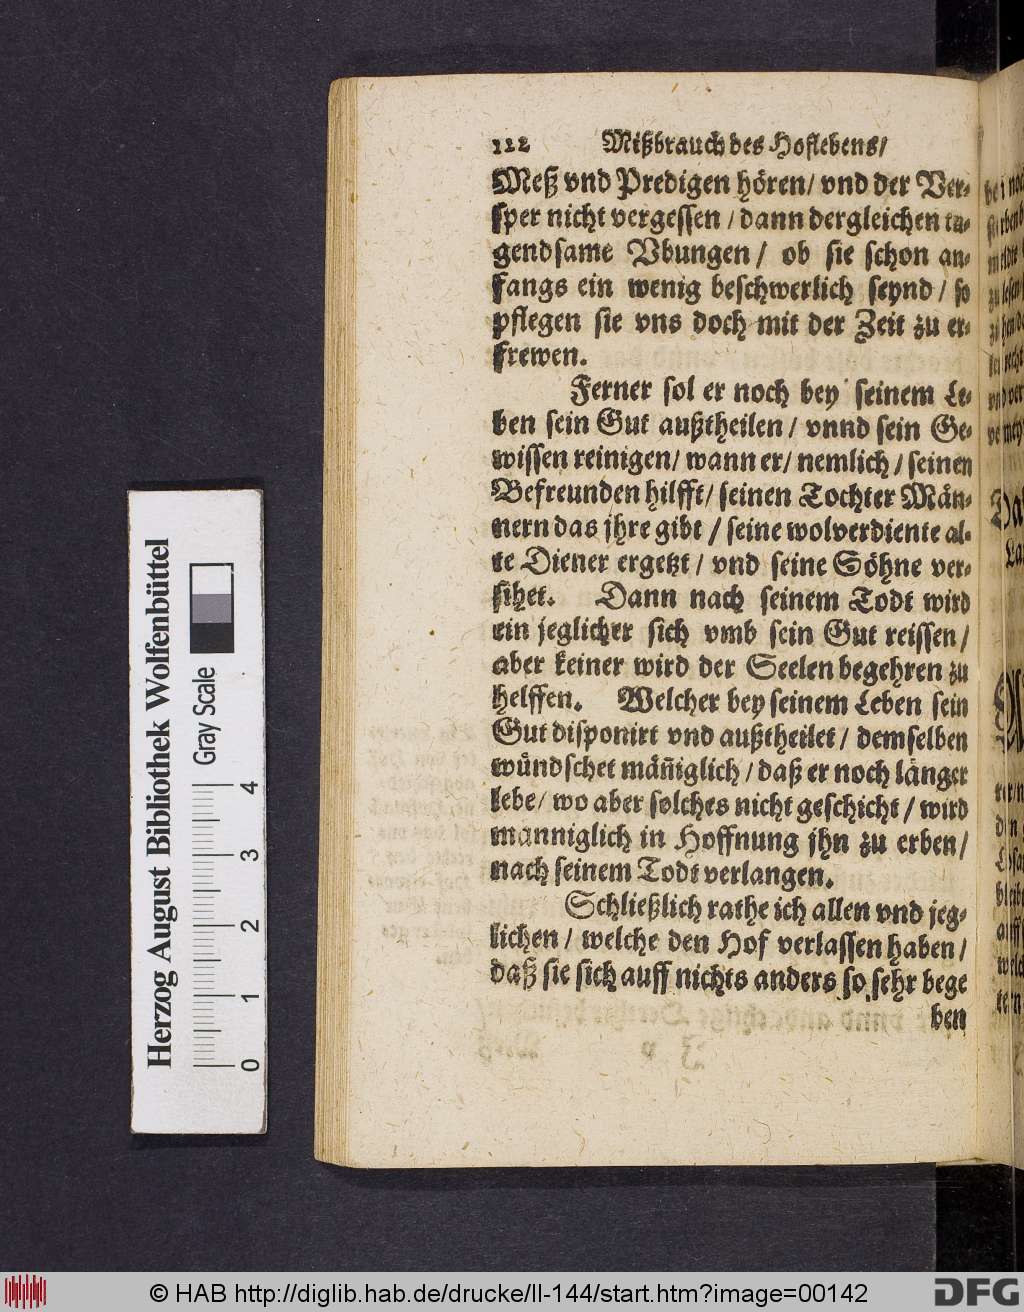 122 Mißbrauch des Hoflebens/
Meß vnd Predigen hören/ vnd der Ver-
sper nicht vergessen / dann dergleichen tu-
gendsame Vbungen / ob sie schon an-
fangs ein wenig beschwerlich seynd / so
pflegen sie vns doch mit der Zeit zu er-
frewen.
Ferner sol er noch bey seinem Le-
ben sein Gut außtheilen / vnnd sein Ge-
wissen reinigen/ wann er/ nemlich / seinen
Befreunden hilfft/ seinen Tochter Män-
nern das jhre gibt / seine wolverdiente al-
te Diener ergetzt / vnd seine Söhne ver-
sihet. Dann nach seinem Todt wird
ein jeglicher sich vmb sein Gut reissen /
aber keiner wird der Seelen begehren zu
helffen. Welcher bey seinem Leben sein
Gut disponirt vnd außtheilet / demselben
wündschet mäñiglich / daß er noch länger
lebe/ wo aber solches nicht geschicht / wird
manniglich in Hoffnung jhn zu erben/
nach seinem Todt verlangen.
Schließlich rathe ich allen vnd jeg-
lichen / welche den Hof verlassen haben /
daß sie sich auff nichts anders so sehr bege
ben
Herzog August Bibliothek Wolfenbüttel
Gray Scale
0 1 2 3 4
© HAB http://diglib.hab.de/drucke/ll-144/start.htm?image=00142
DFG